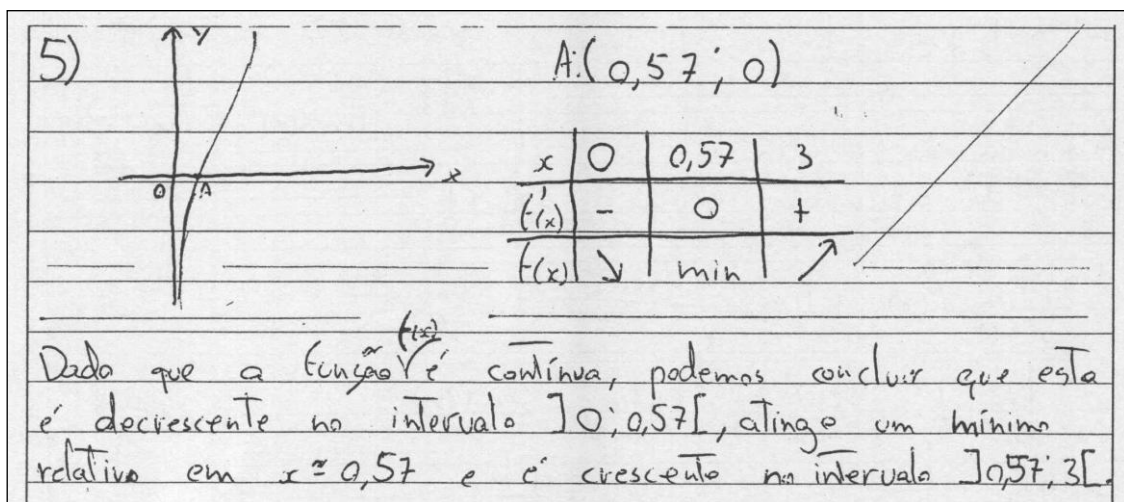 5)
y
A:(0,57; 0)
O A x
x 0 0,57 3
f'(x) - 0 +
f(x) ↘ min ↗
f(x)
Dado que a função é contínua, podemos concluir que esta
é decrescente no intervalo ]0; 0,57[, atinge um mínimo
relativo em x ≈ 0,57 e é crescente no intervalo ]0,57; 3[.